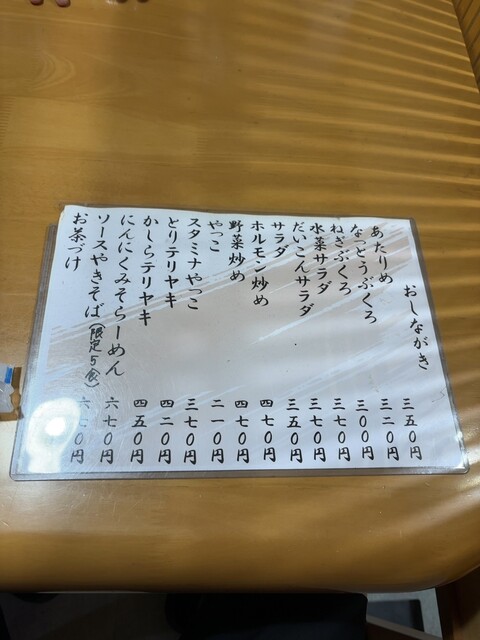 おしながき
あたりめ 三五〇円
なっとうぶくろ 三二〇円
ねぎぶくろ 三〇〇円
水菜サラダ 三七〇円
だいこんサラダ 三七〇円
サラダ 三五〇円
ホルモン炒め 四七〇円
野菜炒め 四七〇円
やっこ 二一〇円
スタミナやっこ 三七〇円
とりテリヤキ 四二〇円
かしらテリヤキ 四五〇円
にんにくみそらーめん 六七〇円
ソースやきそば(限定5食)
お茶づけ